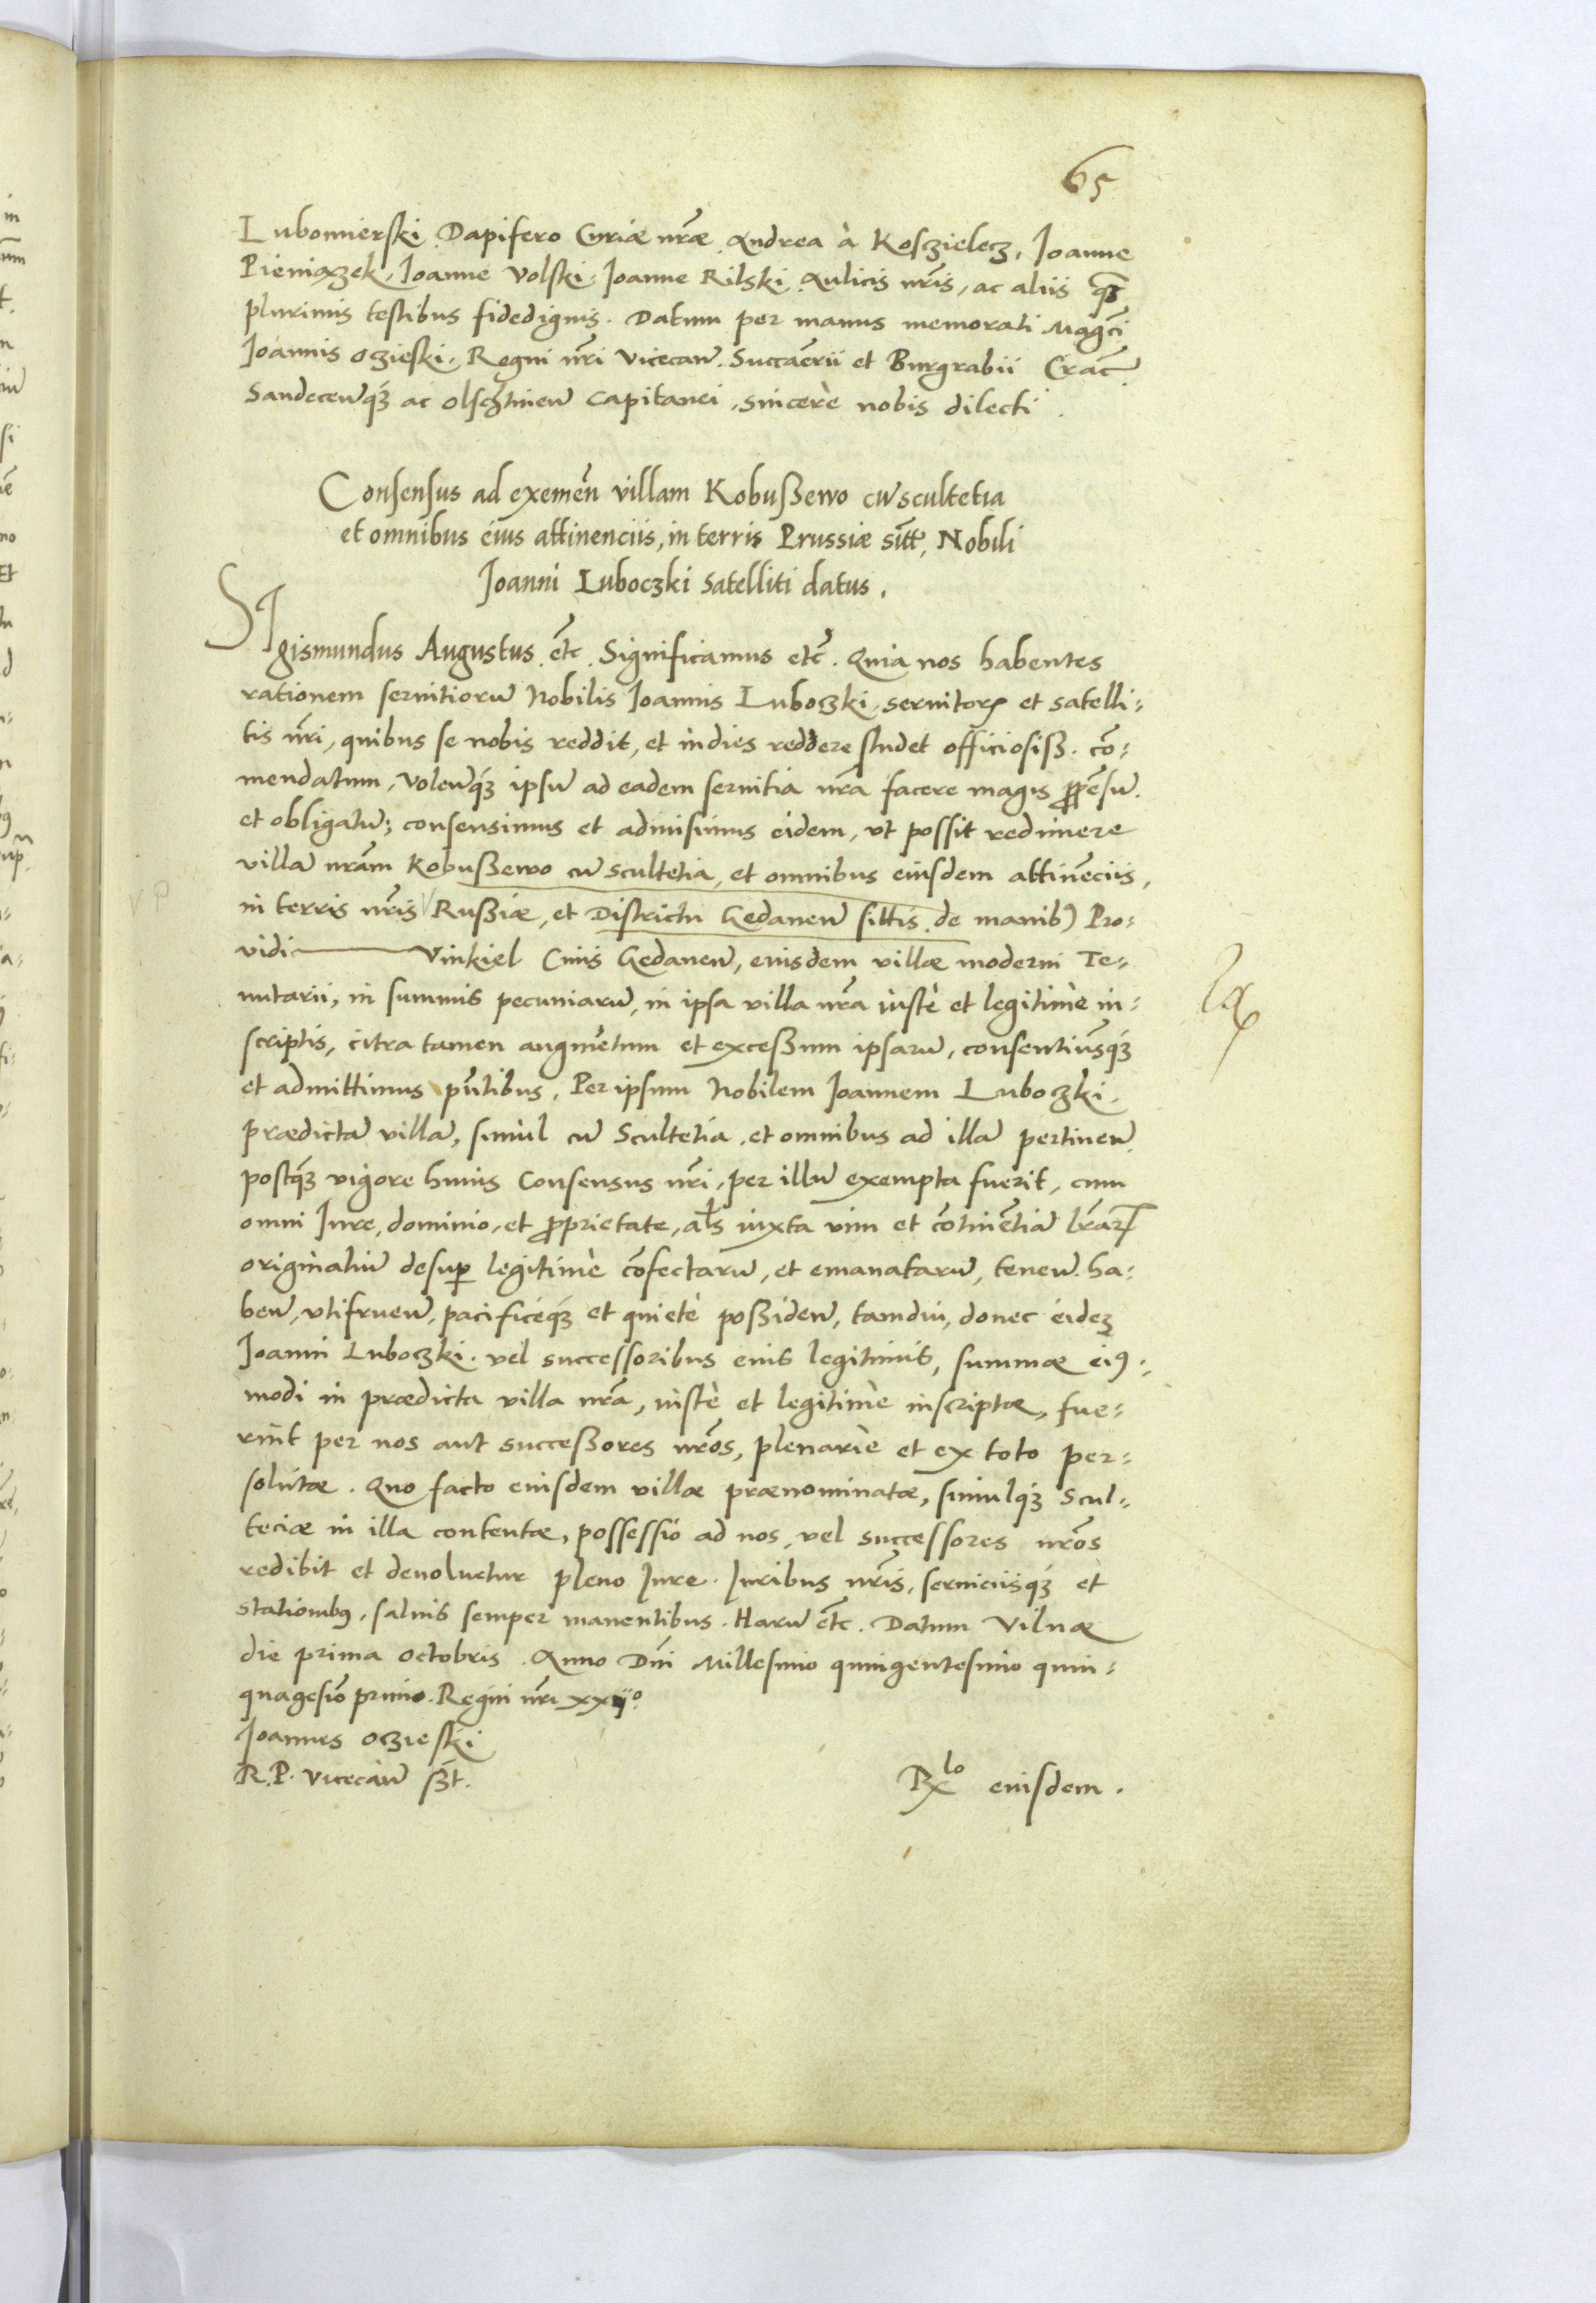 65
Lubomierski Dapifero Curiæ nr̃æ. Andrea à Kosczielecz, Joanne
Pieniązek, Joanne Volski, Joanne Rilski Aulicis nr̃is, ac aliis q̃
plurimis testibus fidedignis. Datum per manus memorati Mag̃ci
Joannis Oczieski, Regni nr̃i Vicecan̄. Succam̃erii et Burgrabii Crac̃.
Sandecen̄q̃ ac Olschtinen̄ Capitanei, sincerè nobis dilecti.
Consensus ad exemen̄ villam Kobußewo cū scultetia
et omnibus eius attinenciis, in terris Prussiæ sitt̃, Nobili
Joanni Luboczki satelliti datus.
SIgismundus Augustus etc̃. Significamus etc̃. Quia nos habentes
rationem seruitiorū Nobilis Joannis Luboczki, seruitoris et satelli-
tis nr̃i, quibus se nobis reddit, et indies reddere studet officiosiß. cõ-
mendatum, volen̄q̃ ipsū ad eadem seruitia nr̃a facere magis ꝓpẽsū.
et obligatū; consensimus et admisimus eidem, vt possit redimere
villã nr̃am Kobußewo cū scultetia, et omnibus eiusdem attinẽciis,
in terris nr̃is Rußiæ, et Districtu Gedanen̄ sittis, de manib) Pro-
vidi Vinkiel Ciuis Gedanen̄, eiusdem villæ moderni Te-
nutarii, in summis pecuniarū, in ipsa villa nr̃a iustè et legitimè in-
scriptis, citra tamen augmẽtum et exceßum ipsarū, consentimusq̃
et admittimus pñtibus, Per ipsum Nobilem Joannem Luboczki.
prædictã villã, simul cū Scultetia, et omnibus ad illã pertinen̄.
postq̃ vigore huius Consensus nr̃i, per illū exempta fuerit, cum
omni Jure, dominio, et ꝓprietate, al̃s iuxta vim et cõtinẽtiã lr̃arꝝ
originaliū desuꝑ legitimè cõfectarū, et emanatarū, tenen̄. ha-
ben̄, vtifruen̄, pacificèq̃ et quietè poßiden̄, tamdiu, donec eidez
Joanni Luboczki, vel successoribus eius legitimis, summæ eiꝰ-
modi in prædicta villa nr̃a, iustè et legitimè inscriptæ, fue-
rint per nos aut succeßores nr̃os, plenariè et ex toto per-
solutæ. Quo facto eiusdem villæ prænominatæ, simulq̃ Scul-
teciæ in illa contentæ, possessio ad nos, vel successores nr̃os
redibit et deuoluetur pleno Jure. Juribus nr̃is, seruiciisq̃ et
stationibꝰ, saluis semper manentibus. Harū etc̃. Datum Vilnæ
die prima Octobris. Anno Dñi Millesimo quingentesimo quin-
quagesim̃o primo. Regni nr̃i xxiiº.
Joannes Oczieski
R. P. Vicecan̄ ßt.
Rlo eiusdem.